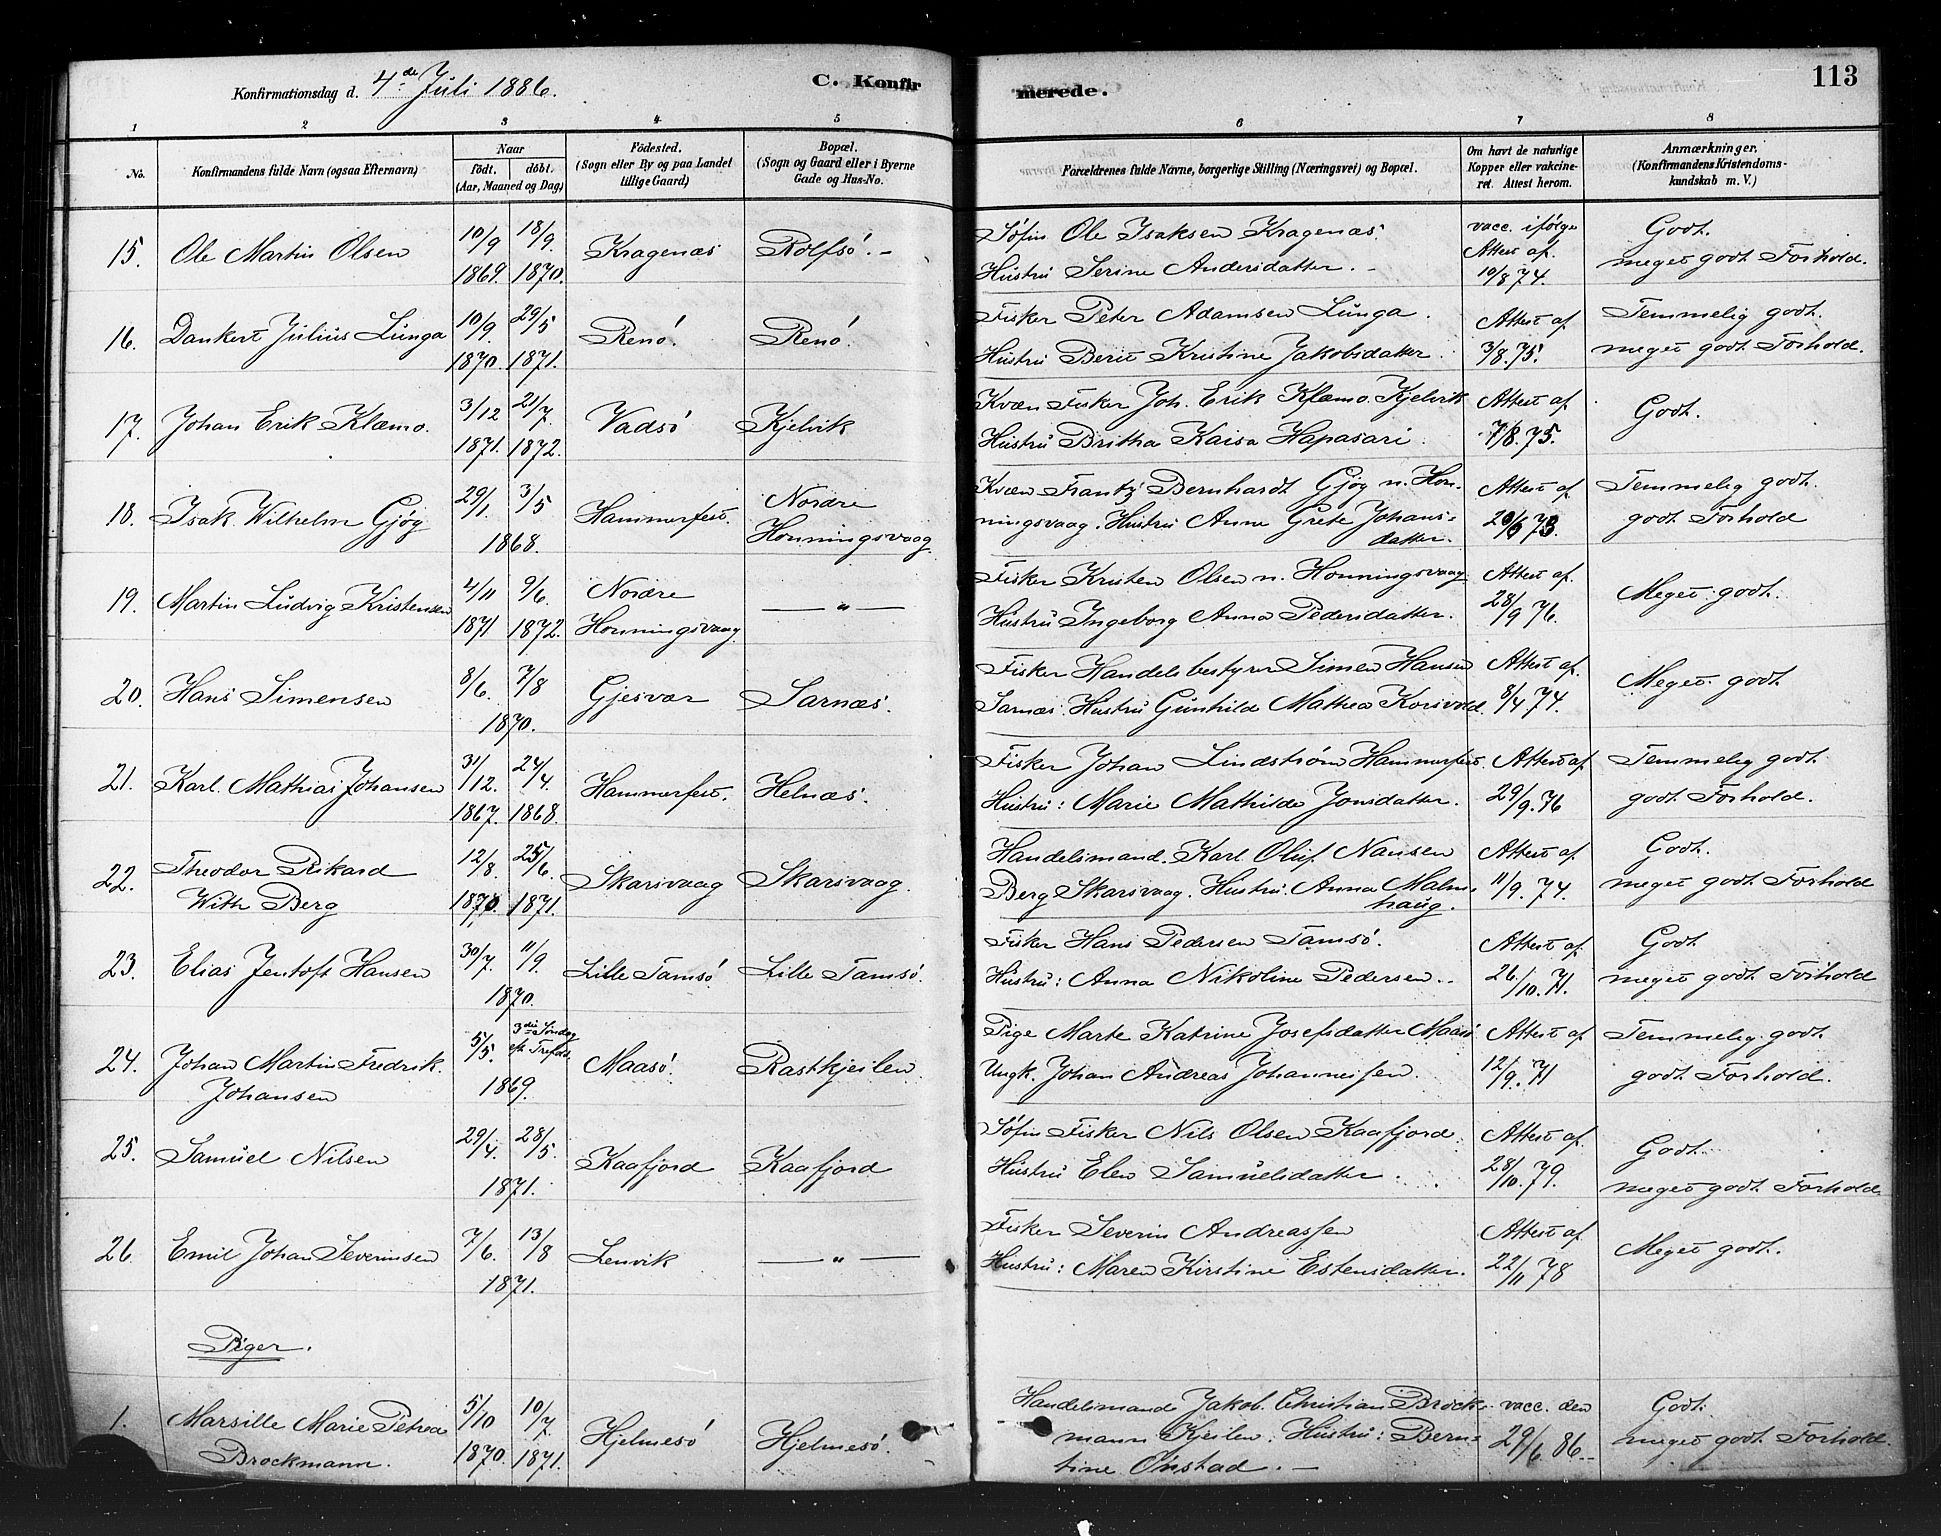 Konfirmationsdag d. 4de Juli 1886.
C. Konfirmerede.
113
1 2 3 4 5 6 7 8
No.
Konfirmandens fulde Navn (ogsaa Efternavn)
Naar
födt. döbt.
(Aar, Maaned og Dag)
Födested.
(Sogn eller By og paa Landet
tillige Gaard)
Bopæl.
(Sogn og Gaard eller i Byerne
Gade og Hus-No.
Forældrenes fulde Navne, borgerlige Stilling (Næringsvei) og Bopæl.
Om havt de naturlige
Kopper eller vakcine-
ret. Attest herom.
Anmærkninger.
(Konfirmandens Kristendoms-
kundskab m. V.)
15. Ole Martin Olsen 10/9 1869. 18/9. 1870. Kragenæs Rolfsö. -
Söfin Ole Isaksen Kragenæs.
Hustru Serine Andersdatter. -
vacc. ifölge
Attest af.
10/8 74.
Godt.
meget godt Forhold.
16. Dankert Julius Lunga 10/9. 1870. 29/5 1871. Renö. Renö.
Fisker Peter Adamsen Lunga.
Hustru Berit Kristine Jakobsdatter
Attest af
3/8. 75.
Temmelig godt.
meget godt Forhold.
17. Johan Erik Klæmo. 3/12 1871. 21/7. 1872. Vadsö Kjelvik
Kvæn Fisker Joh. Erik Klæmo. Kjelvik
Hustru Britha Kaisa Hapasari
Attest af
7/8. 75.
Godt.
18. Isak Wilhelm Gjög 29/1. 3/5 1868. Hammerfest. Nordre
Honningsvaag
Kvæn Frantz Bernhardt Gjög n. Hon-
ningsvaag. Hustru Anne Grete Johans-
datter.
Attest af
20/6 73.
Temmelig godt.
godt Forhold
19. Martin Ludvig Kristensen 4/11 1871 9/6. 1872. Nordre
Honningsvaag — " —
Fisker Kristen Olsen n. Honningsvaag
Hustru Ingeborg Anna Pedersdatter.
Attest af.
28/9 76.
Meget godt.
20. Hans Simensen 8/6. 7/8 1870. Gjesvær Sarnæs.
Fisker Handelsbestyrer Simen Hansen
Sarnæs. Hustru Gunhild Mathea Korsvold.
Attest af.
8/4 74.
Meget godt
21. Karl Mathias Johansen 31/12. 1867. 24/4. 1868. Hammerfest. Helnæs.
Fisker Johan Lindström Hammerfest.
Hustru: Marie Mathilde Jonsdatter.
Attest af
29/9. 76
Temmelig godt.
godt Forhold.
22. Theodor Rikard
With Berg 12/8. 1870. 25/6. 1871. Skarsvaag Skarsvaag.
Handelsmand. Karl Oluf Nansen
Berg Skarsvaag. Hustru. Anna Malm-
haug.
Attest af
11/9. 74.
Godt.
meget godt Forhold
23. Elias Jentoft Hansen 30/7. 11/9. 1870. Lille Tamsö. Lille Tamsö.
Fisker Hans Pedersen Tamsö.
Hustru: Anna Nikoline Pedersen..
Attest af
26/10. 71.
Godt
meget godt Forhold
24. Johan Martin Fredrik.
Johansen 5/5. 3die Söndag
eft. Trefold. 1869. Maasö. Rastkjeilen
Pige Marte Katrine Josefsdatter Maasö
Ungk. Johan Andreas Johannessen.
Attest af
12/9. 71
Temmelig godt
godt Forhold.
25. Samuel Nilsen 29/4. 28/5. 1871. Kaafjord Kaafjord
Söfin Fisker Nils Olsen Kaafjord.
Hustru Elen Samuelsdatter.
Attest af.
28/10. 79.
Godt.
meget godt Forhold.
26. Emil Johan Severinsen 7/6. 13/8 1871. Lenvik — " —
Fisker Severin Andreassen
Hustru: Maren Kirstine Estensdatter.
Attest af
22/11 78
Meget godt.
Piger.
1. Marsille Marie Petrea
Brockmann. 5/10 1870. 10/7. 1871. Hjelmesö Hjelmesö.
Handelsmand Jakob Christian Brock-
mann Kjeilen. Hustru: Bern-
tine Onstad. -
vacc. den
29/6. 86.
Godt.
meget godt Forhold.